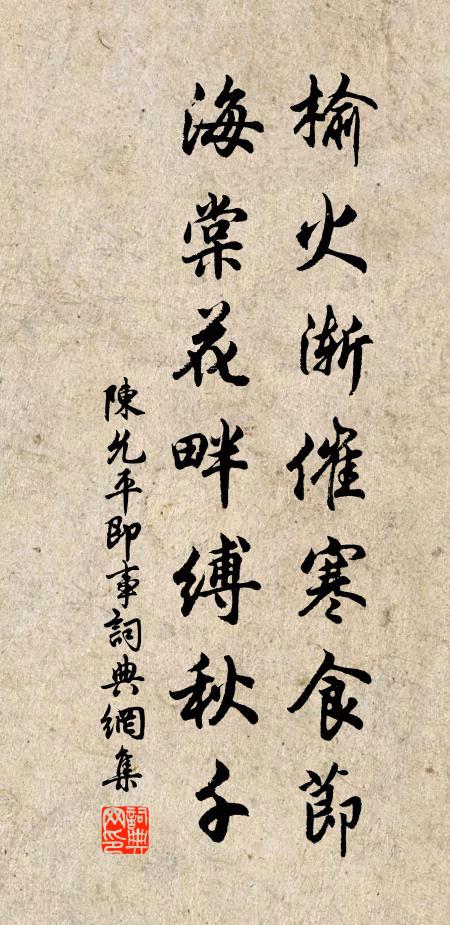 榆火漸催寒食節
海棠花畔縛秋千
陳允平即事詞典網集
詞典網印